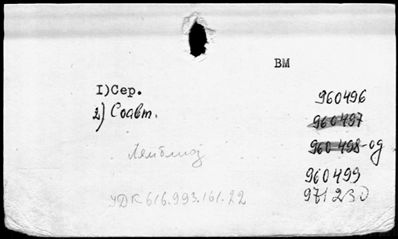 ВМ
I)Сер.
2) Соавт.
960496
960497
960498-од
960499
971230
УДК 616.993.161.22